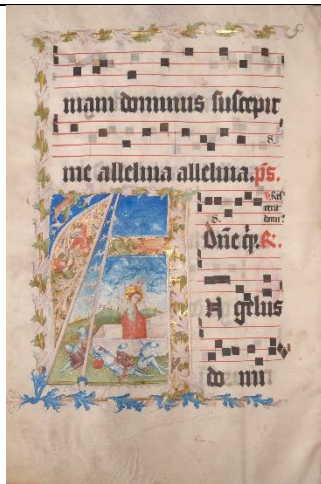 niam dominus suscepit
me alleluia alleluia. ps.
Dñe q̄. R.
A ngelus
do mi